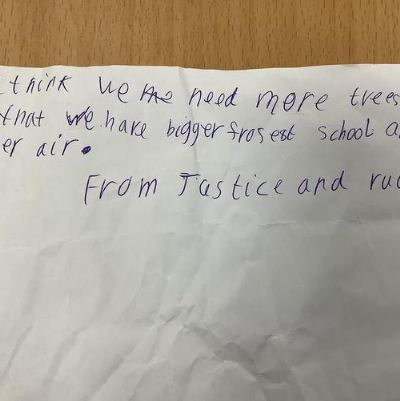 think we need more trees
that we have bigger frosest school a
er air.
From Justice and ru